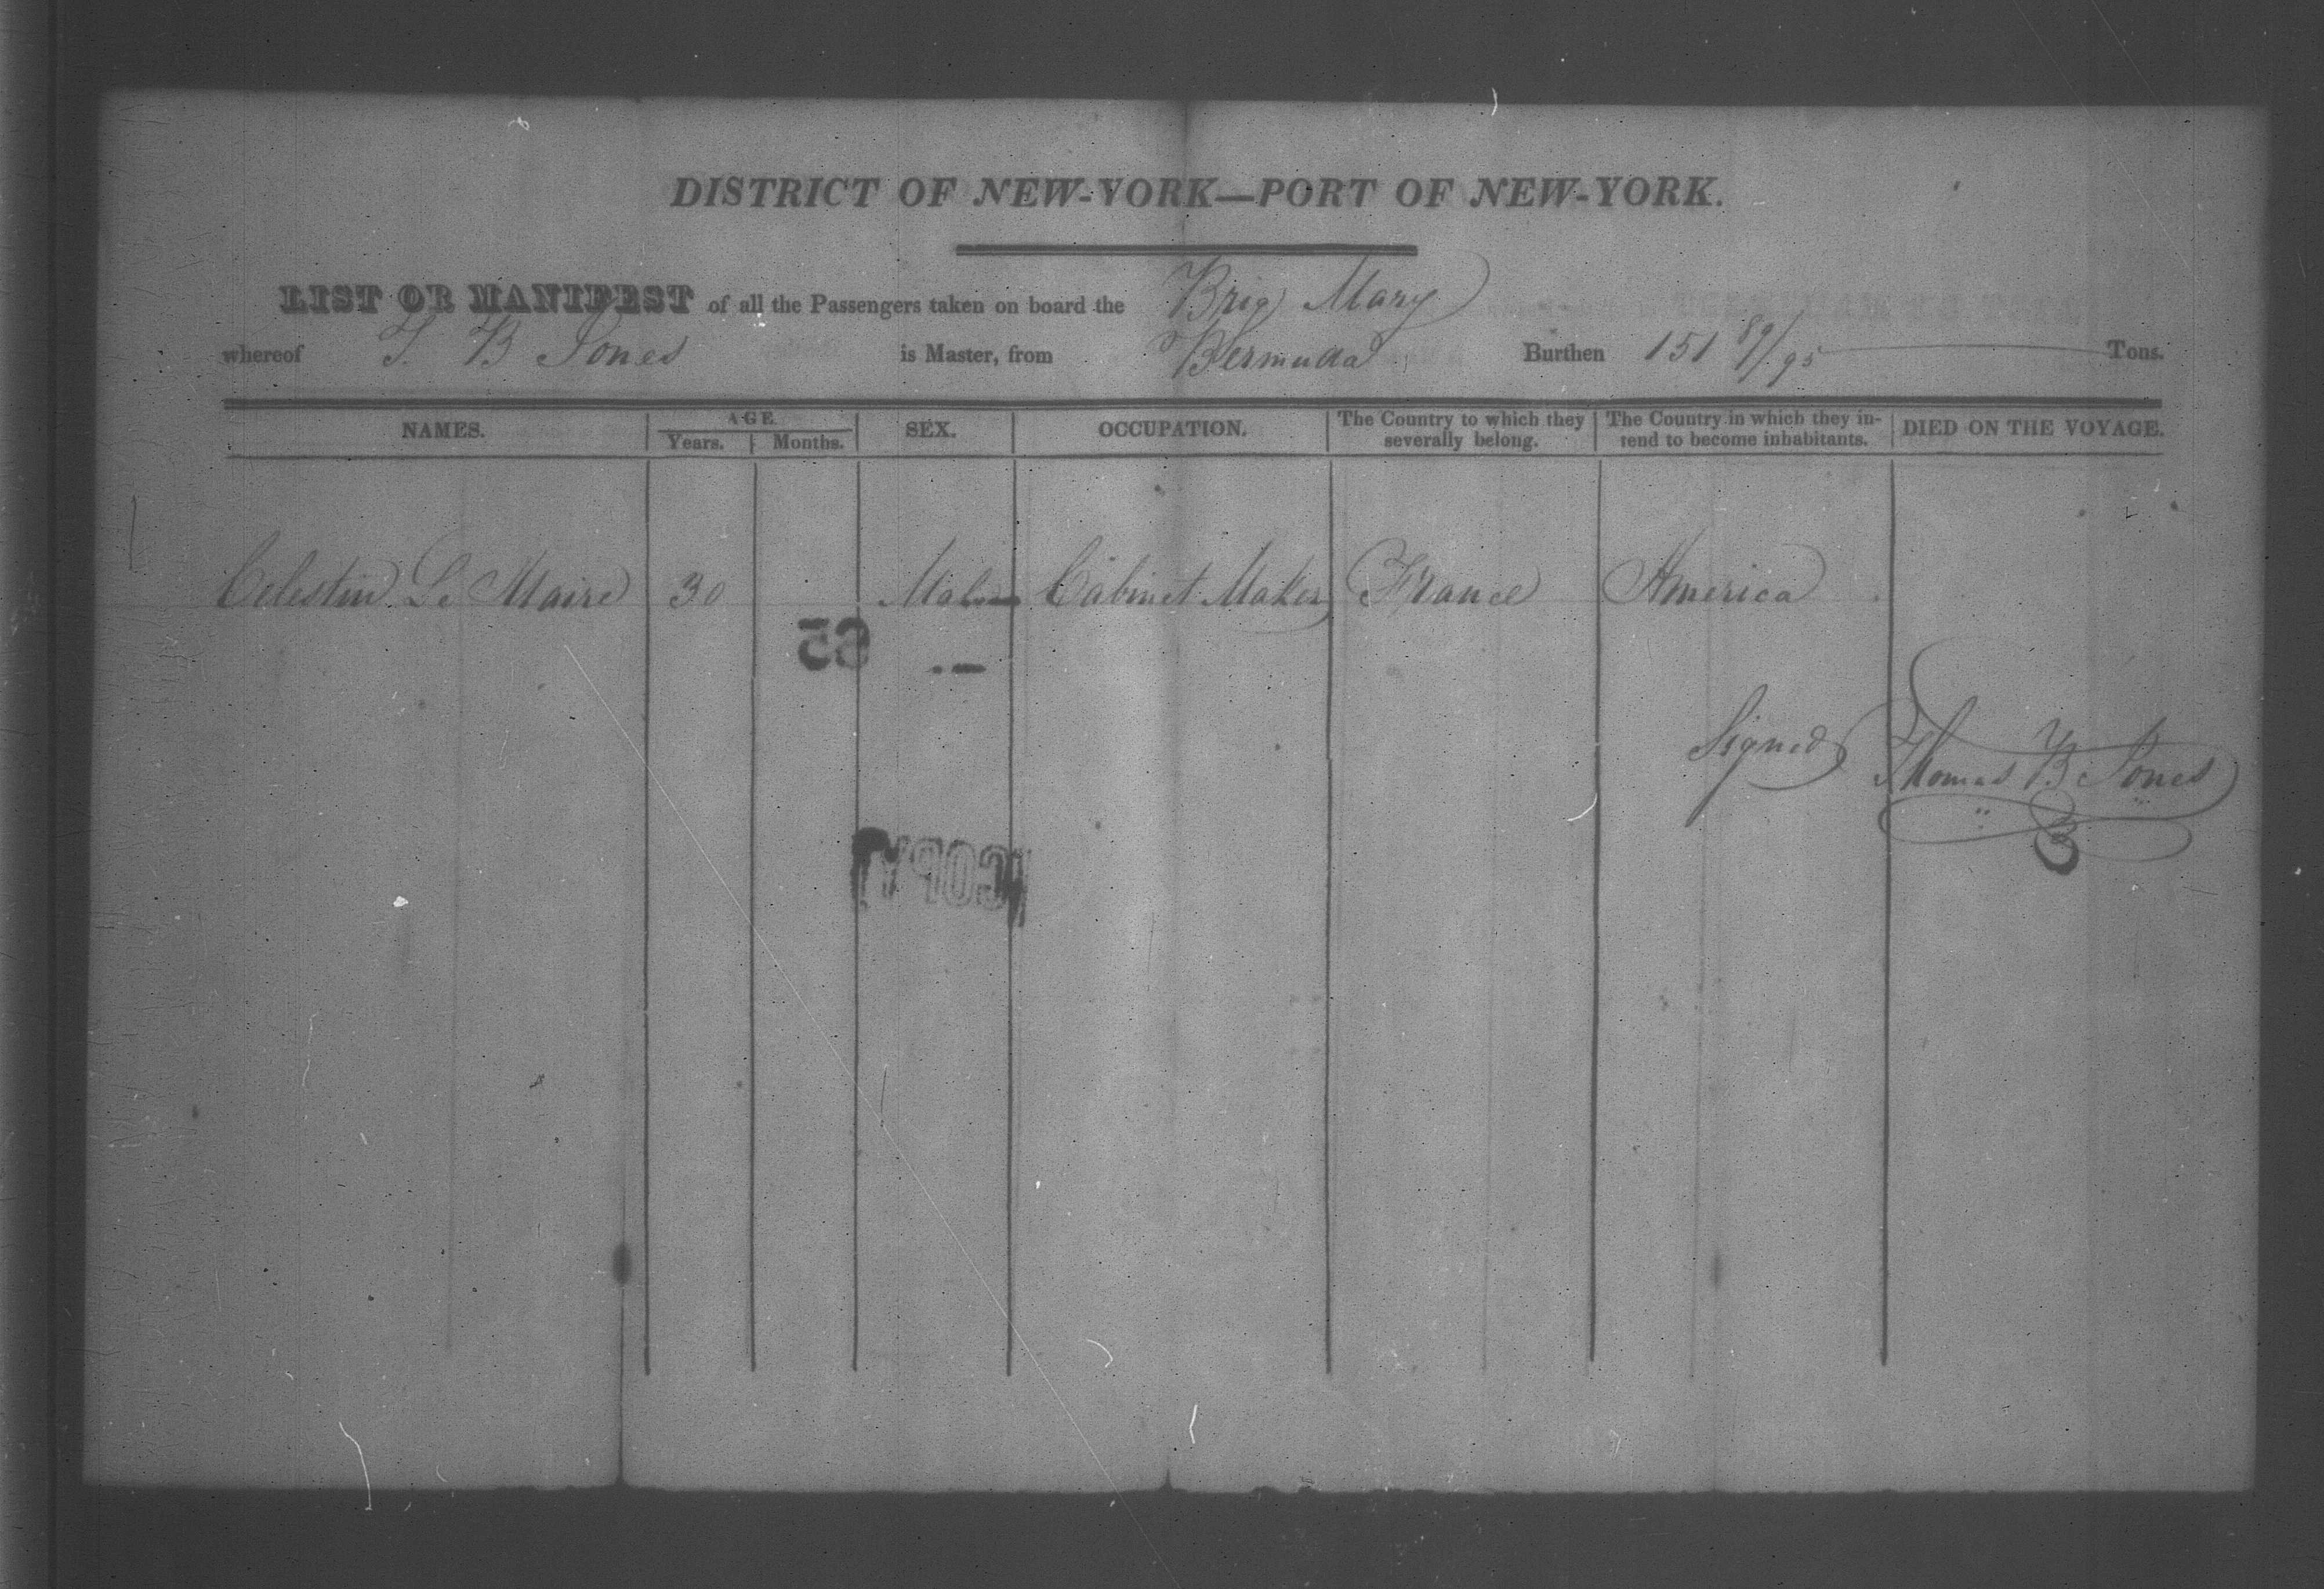 DISTRICT OF NEW-YORK—PORT OF NEW-YORK.
LIST OR MANIFEST of all the Passengers taken on board the Brig Mary
whereof T. B Jones is Master, from Bermuda Burthen 151 89/95 Tons.
NAMES. AGE. SEX. OCCUPATION. The Country to which they severally belong. The Country in which they intend to become inhabitants. DIED ON THE VOYAGE.
Years. Months.
Celestin Le Maire 30 Male Cabinet Maker France America
Signed Thomas B Jones
COPY